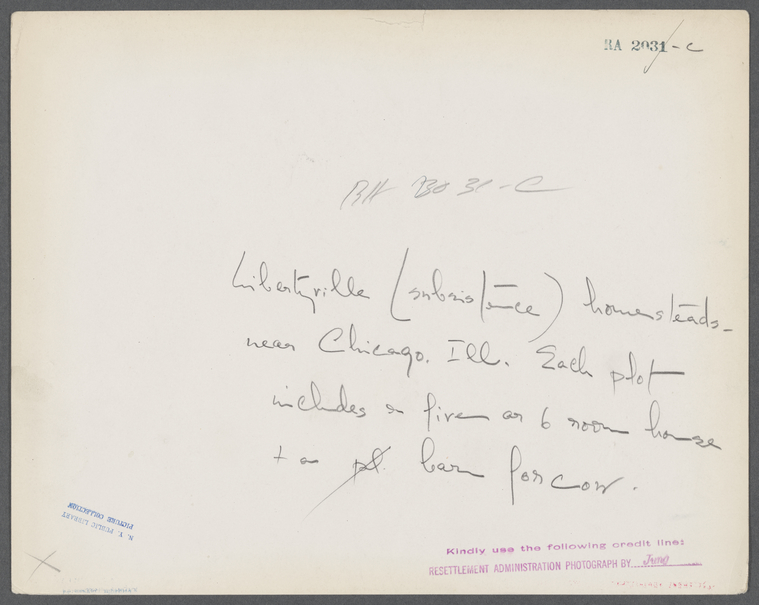 RA 2031-C
RA 2031-C
Libertyville (subsistence) homesteads-
near Chicago, Ill. Each plot
includes a five or 6 room house
+ a pt. barn for cow.
N. Y. PUBLIC LIBRARY
PICTURE COLLECTION
Kindly use the following credit line:
RESETTLEMENT ADMINISTRATION PHOTOGRAPH BY